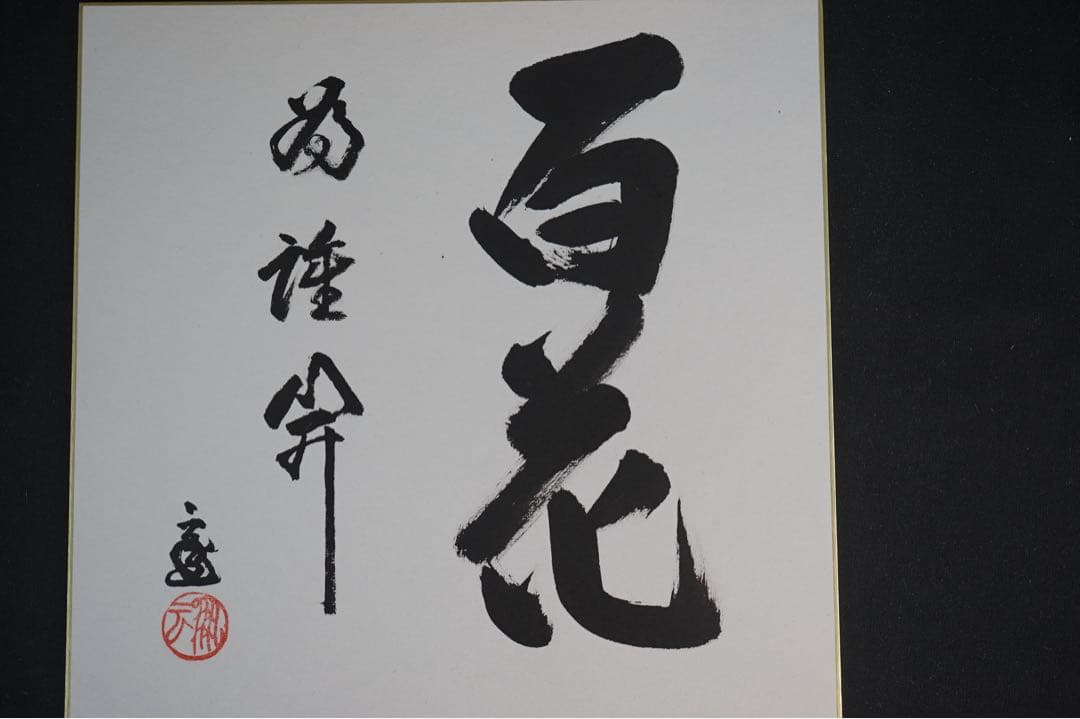 百花
為誰開